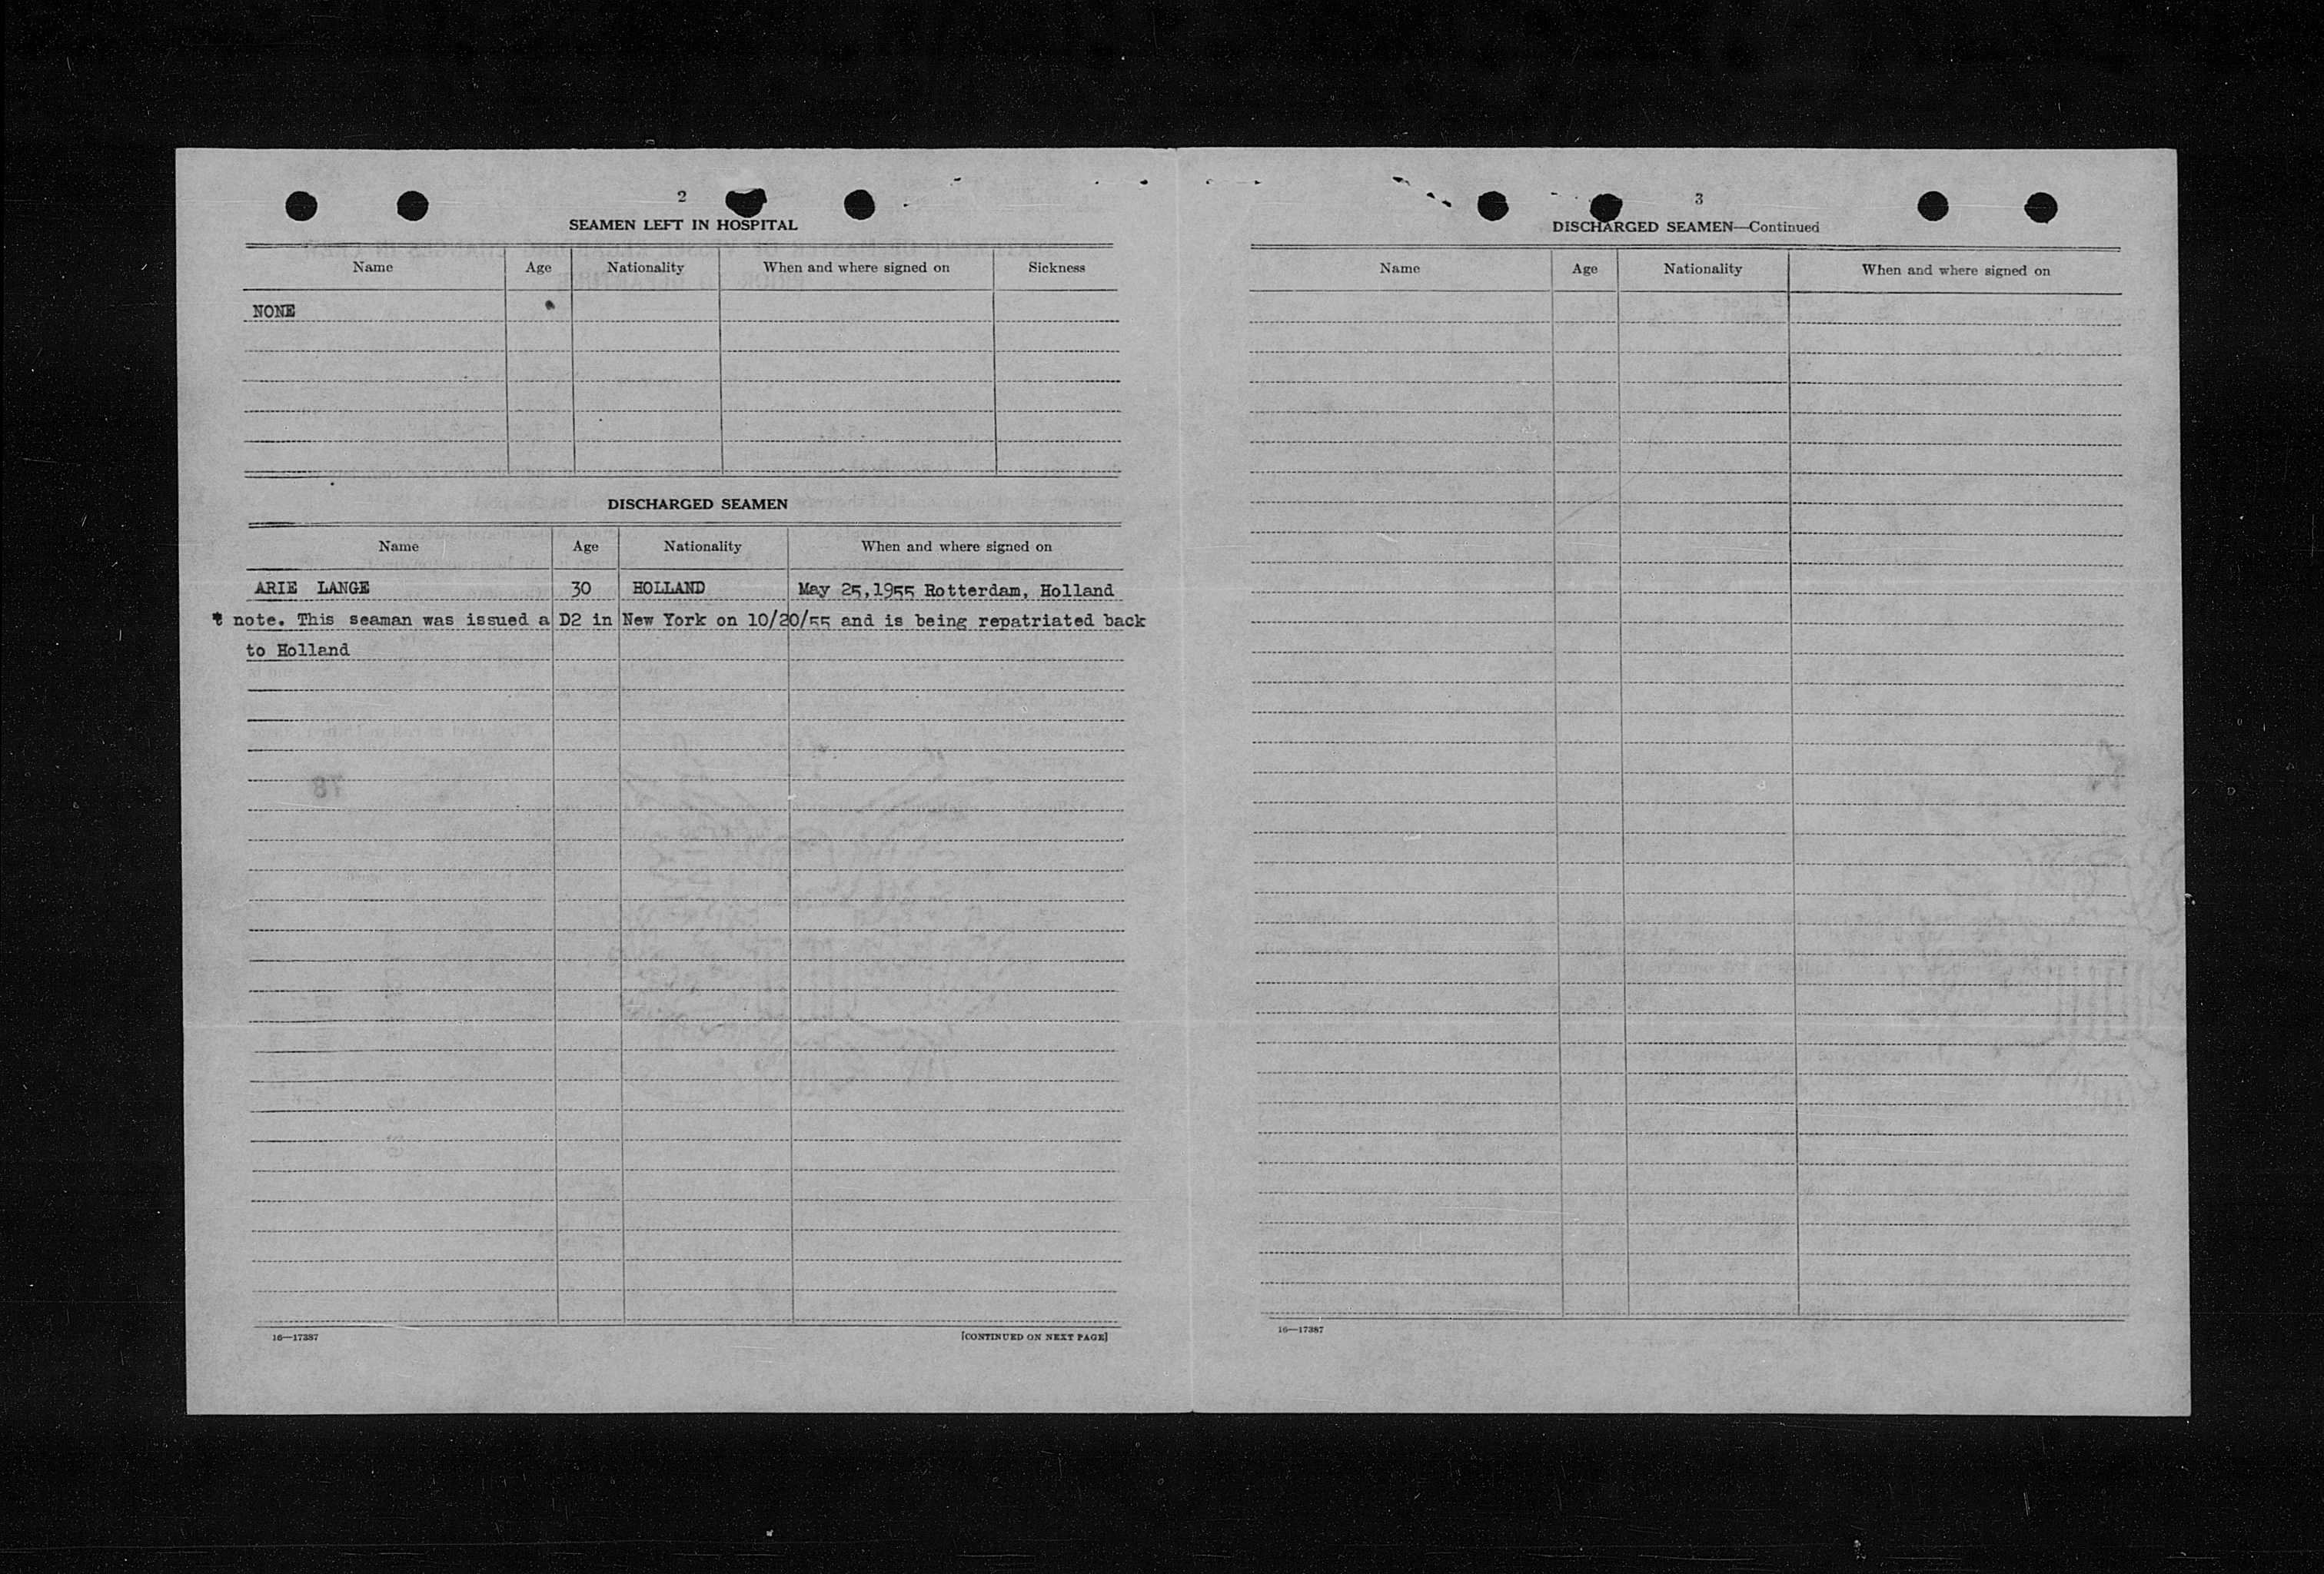 2
SEAMEN LEFT IN HOSPITAL
Name Age Nationality When and where signed on Sickness
NONE
DISCHARGED SEAMEN
Name Age Nationality When and where signed on
ARIE LANGE 30 HOLLAND May 25,1955 Rotterdam, Holland
* note. This seaman was issued a D2 in New York on 10/20/55 and is being repatriated back
to Holland
16—17387 [CONTINUED ON NEXT PAGE]
3
DISCHARGED SEAMEN—Continued
Name Age Nationality When and where signed on
16—17387